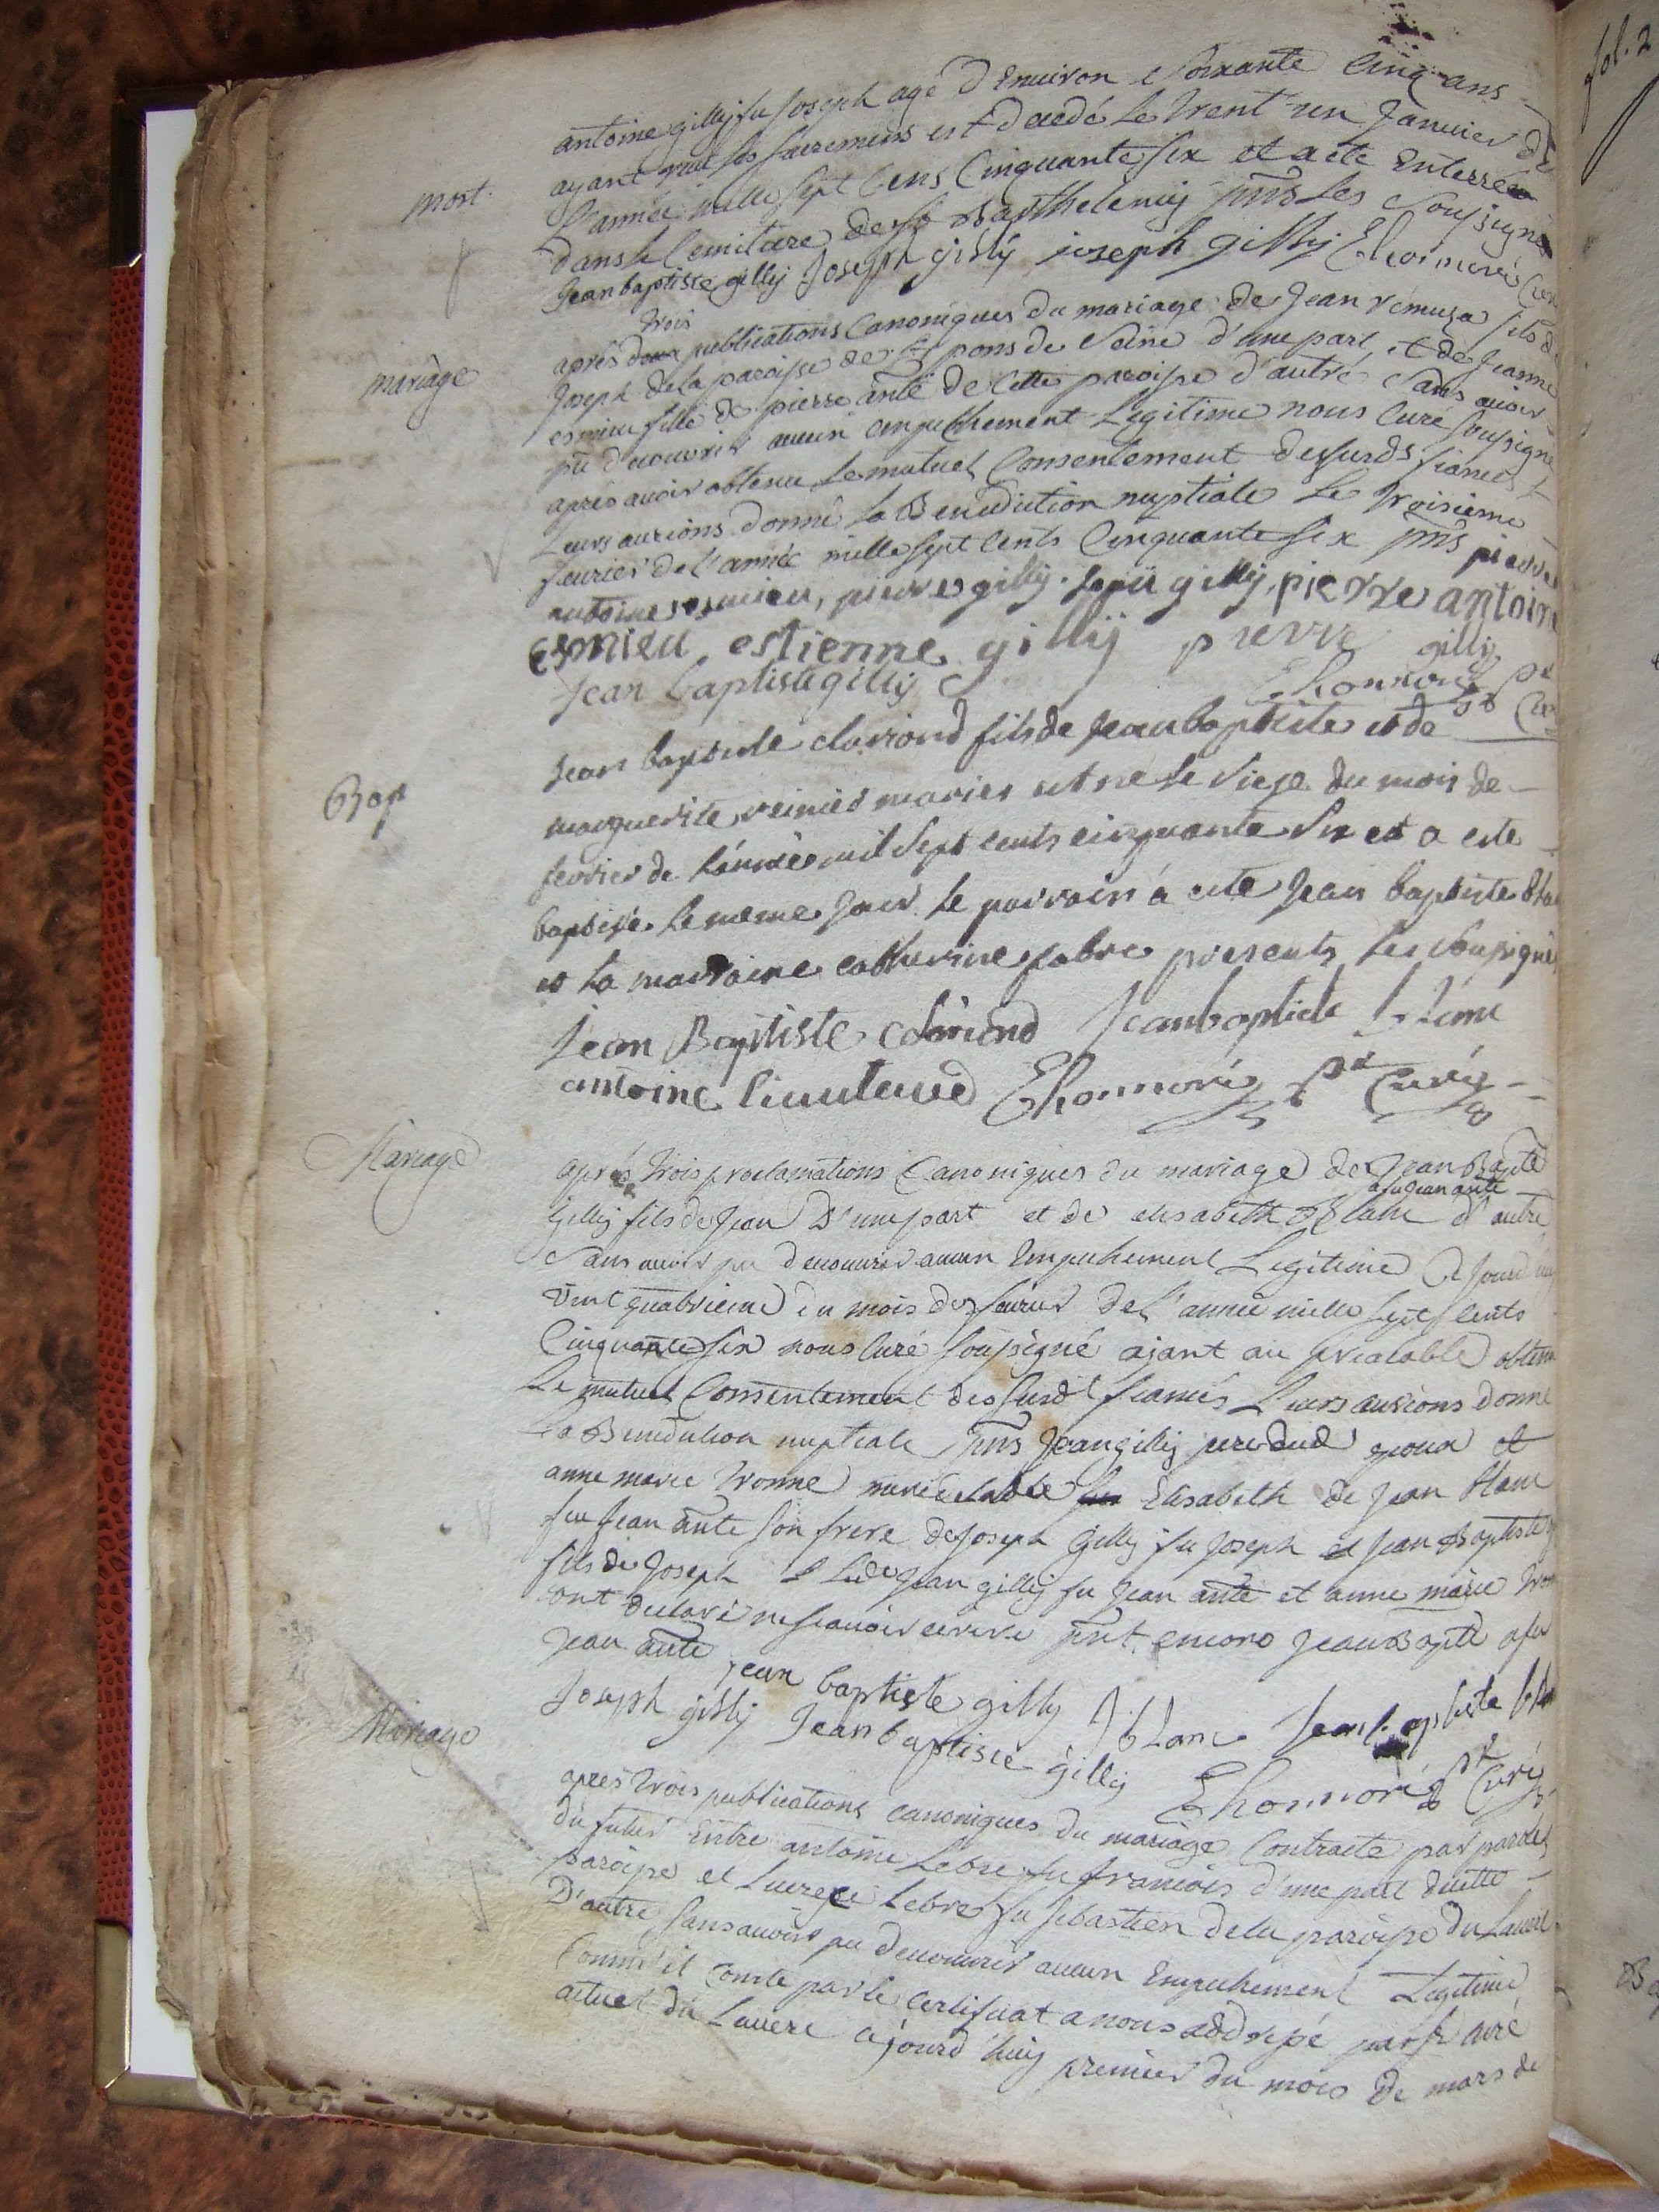 fol. 2
mort.
antoine gilly fu Joseph agé d'Environ soixante Cinq ans
ayant les sacremens est decedé le trent un Janvier de
l'année mille sept Cens Cinquante six et a eté Enterré
dans le Cemitiere de St Barthelemy pnts les soussignés
Jean baptiste gilly Joseph gilly joseph gilly Ehonnoré Curé
mariage
après trois publications Canoniques du mariage de Jean rémuza fils de
Joseph de la paroisse de St pons de seine d'une part et de Jeanne
esmieu fille de pierre ante de cette paroisse d'autre sans avoir
pu decouvrir aucun empechement Legitime nous Curé soussigné
après avoir obtenu le mutuel Consentement desurds fiancés
Leurs aurions donné la Benediction nuptiale le troisieme
feurier de l'année mille sept Cents Cinquante six pnts pierre
antoine esmieu, pierre gilly. gilly. pierre antoine
esmieu estienne gillÿ pierre gilly
Jean baptiste gilly Ehonnoré pt Curé
Bap
Jean baptiste clariond fils de Jean baptiste et de
marguerite reinier mariés est né le siege du mois de
fevrier de l'année mil sept cents cinquante six et a esté
baptisé le meme jour le parrain a eté Jean baptiste
et la marraine catherine fabre presents les soussignés
Jean Baptiste clariond Jean baptiste
antoine lieuteaud Ehonnoré pt Curé
Mariage
après trois proclamations Canoniques du mariage de Jean Bapte
à fu Jean ante
Gilly fils de Jean D'une part et de elisabeth Blanc d'autre
sans avoir pu decouvrir aucun Empechement Legitime Ce jourd'huy
vint quatrieme du mois de feurier de l'année mille sept Cents
Cinquante six nous Curé soussigné aiant au prealable obtenu
Le mutuel Consentement des surdt fiancés Leurs aurions donné
La Benediction nuptiale pnts Jean gilly pere dud epoux et
anne marie tronne mere de ladte Elisabeth de Jean blanc
fu Jean ante son frere de Joseph Gilly fu Joseph et Jean Baptiste
fils de Joseph Jean gilly fu Jean ante et anne marie
ont declaré ne scavoir ecrire pnt encore Jean Bapte à fu
Jean ante jean baptiste gilly J blanc Jean baptiste
Joseph gilly Jean baptiste gilly Ehonnoré pt Curé
Mariage
après trois publications canoniques du mariage Contracté par paroles
du futur Entre antoine Lebre fu francois d'une part de cette
paroisse et Lucrece Lebre fu sebastien de la paroisse du Lauere
D'autre sans avoir pu decouvrir aucun Empechement Legitime
Comm'il Conste par le Certificat a nous addressé par sr curé
actuel du Lauere cejourd'huy premier du mois de mars de